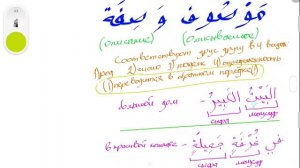 مَوْصُوف وَ صِفَة
(описание) (описываемое)
Соответствуют друг другу в 4 видах
1) род 2) число 3) падеж 4) определенность
(!) переводится в обратном порядке (!)
большой дом - اَلْبَيْتُ الْكَبِيرُ
сифа мавсуф
в красивой комнате - فِي غُرْفَةٍ جَمِيلَةٍ
сифа мавсуф